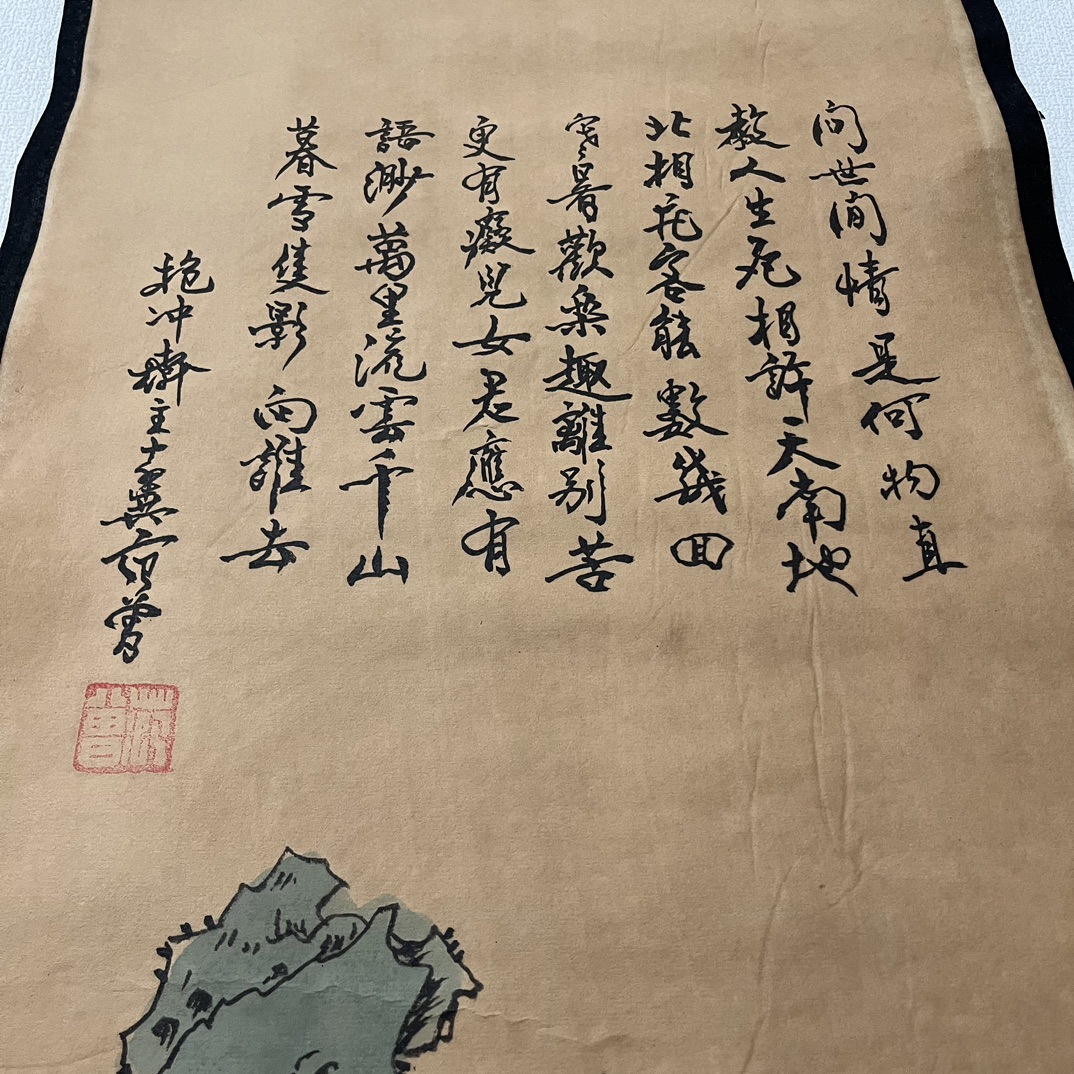 問世間情是何物直
教人生死相許天南地
北相尨客能數幾回
寒暑歡樂趣離別苦
更有癡兒女君應有
語渺萬里流雲千山
暮雪隻影向誰去
抱冲齋主十翼范曾
范曾